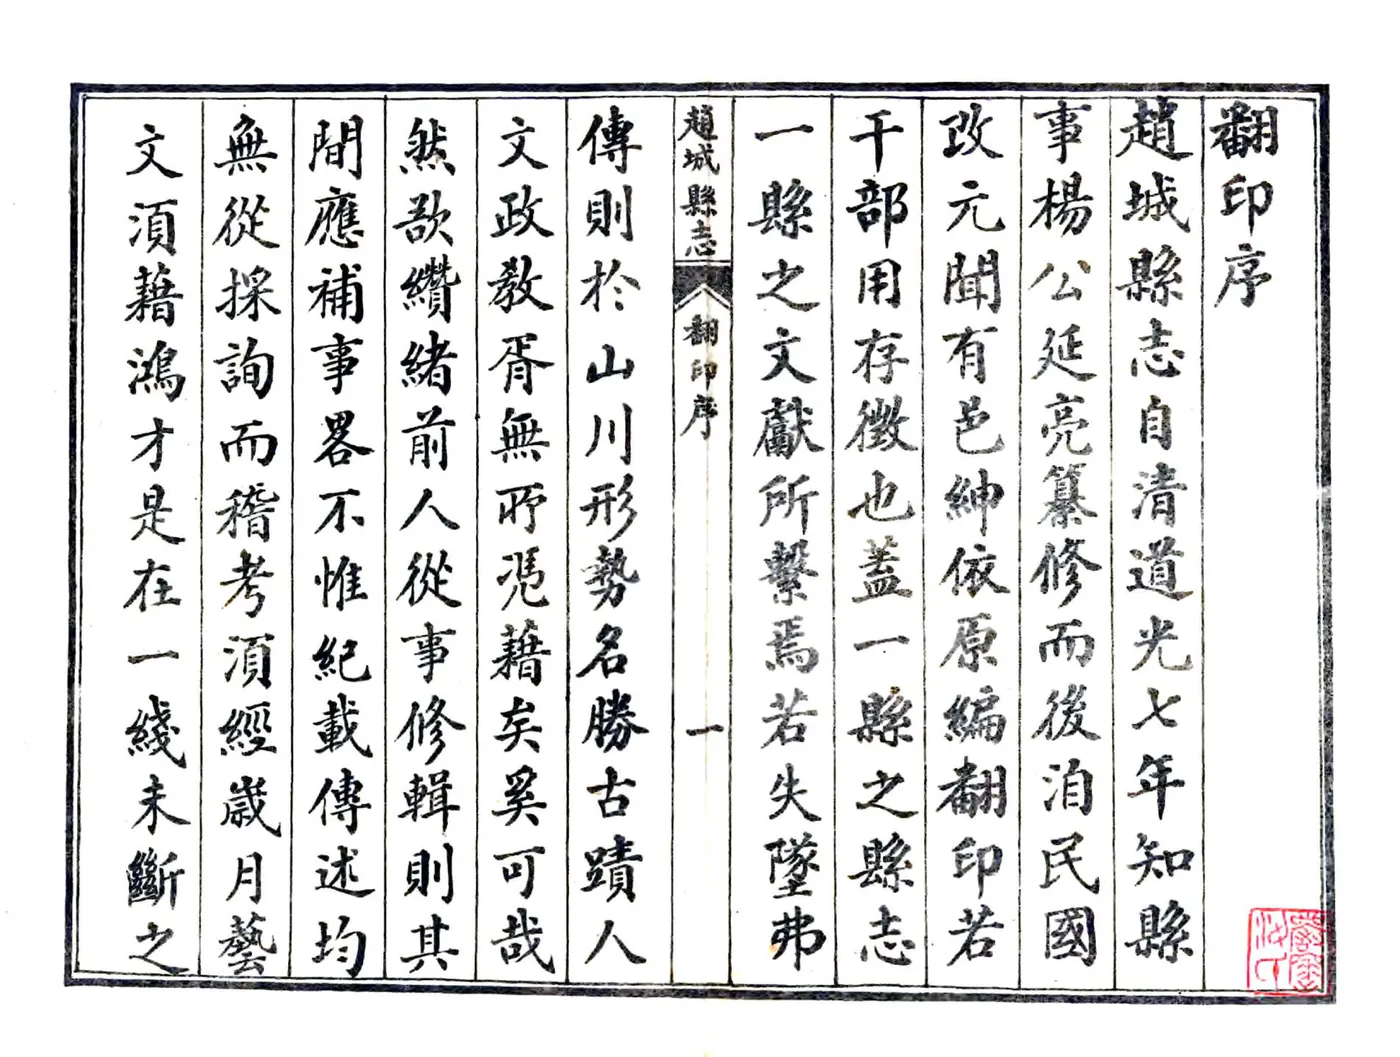 翻印序
趙城縣志自清道光七年知縣
事楊公延亮纂修而後洎民國
改元聞有邑紳依原編翻印若
干部用存徵也蓋一縣之縣志
一縣之文獻所繫焉若失墜弗
趙城縣志 翻印序 一
傳則於山川形勢名勝古蹟人
文政敎胥無所憑藉矣奚可哉
然欲纘緒前人從事修輯則其
間應補事畧不惟紀載傳述均
無從採詢而稽考須經歲月藝
文須藉鴻才是在一綫未斷之